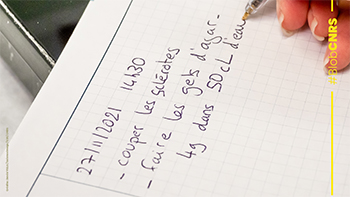 27/11/2021 14h30
- couper les sclérotes
- faire les gels d'agar -
4g dans 50cL d'eau
#BlobCNRS